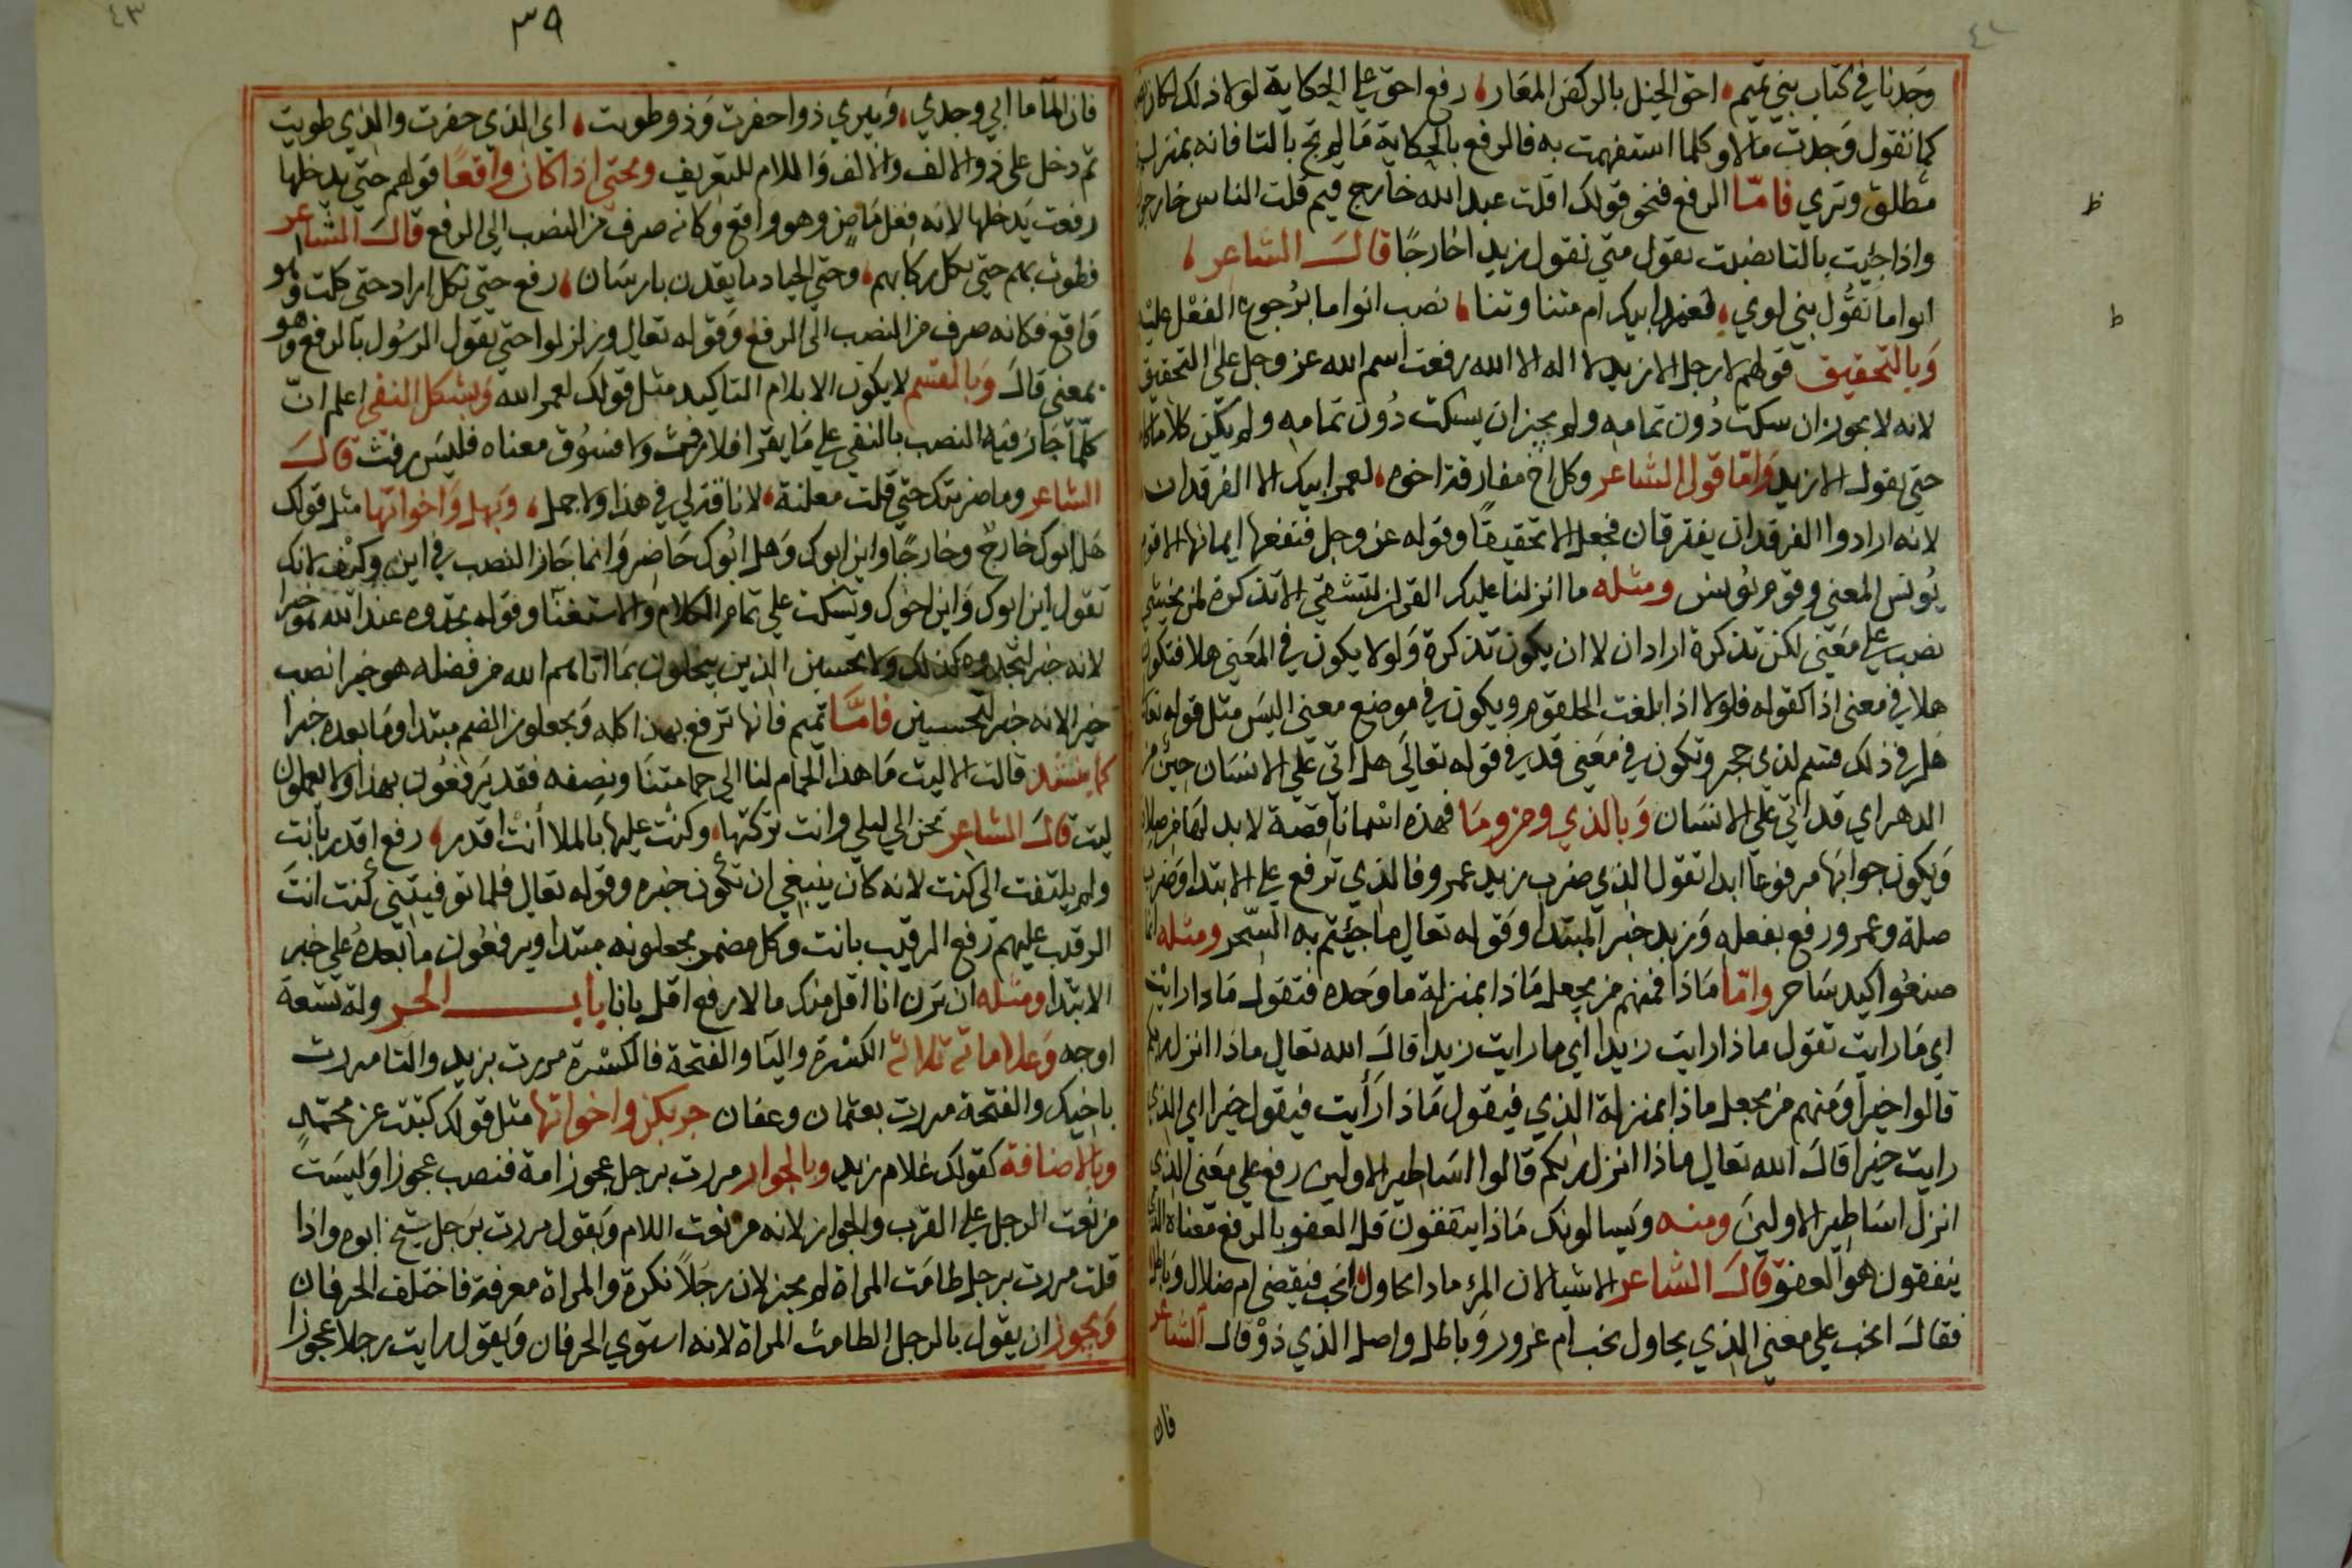 ٤٢
وجدنا في كتاب بني تميم، احق الخيل بالركض المعار، رفع احق علي الحكاية لولا ذلك لكان
كما تقول وجدت مالا وكلما استفهمت به فالرفع بالحكاية ما لم تج بالتا فانه بمنزلة
مطلق وتري فامّا الرفع فنحو قولك اقلت عبد الله خارج فيم قلت الناس خارجون
واذا جئت بالتا نصبت تقول متي تقول زيدا خارجًا قال الشاعر،
انواما تقُّول بني لوي، قعيد ابيك ام متنا وتنا، نصب انواما برُجوع الفعْل عليه
وَبالتحقيق قولهم لا رجل الا زيد لا اله الا الله رفعت اسم الله عز وجل على التحقيق
لانه لا يجوز ان سكت دُون تمامه ولم يجز ان يسكت دُون تمامه ولم يكن كلاما
حتي يقول الا زيد وَامّا قول الشاعر وكل اخ مفارقة اخوه، لعمر ابيك الا الفرقدان
لانه ارادوا الفرقدان يفترقان فجعل الا تحقيقًا وقوله عز وجل فنفعها ايمانها الا قوم
يُونس المعني وقوم يُونس ومثله ما انزلنا عليك القران لتشقي الا تذكرة لمن يخشي
نصب علي مَعني لكن تذكرة اراد ان لا ان يكون تذكرة وَلولا يكون في المَعني هلا فتكون
هلا في معني اذا كقوله فلولا اذا بلغت الحلقوم ويكون في موضع معني اليسَ مثل قوله تعالي
هَل في ذلك قسم لذي حجر وتكون في مَعني قد في قوله تعالَي هل اتي عَلي الانسَان حين من
الدهر اي قد اتي عَلي الانسَان وَبالذي ومن ومَا فهذه اسْمانا قصة لا بد لهَا من صلات
وَيكون جوابَها مرفوعاً ابدا تقول الذي ضرب زيد عمرو فالذي ترفع علي الابتدا وَضرب
صلة وعمرو رفع بفعله وَزيد خبر المبتدا وقوله تعالي ما جئتم به السّحر ومثله انما
صنعُوا كيد سَاحر وامّا مَاذا فمنهم من يجعل مَاذا بمنزلة ما وَحده فتقول مَاذا رايت
اي مَا رايت تقول ماذا رايت زيدا اي ما رايت زيدا قالَ الله تعالي ماذا انزل ربكم
قالوا خيرا وَمنهم من يجعل ماذا بمنزلة الذي فيقول مَاذا رَأيت فيقول خيرا اي الذي
رايت خيرا قالَ الله تعالي ماذا انزل ربكم قالوا اسَاطير الاولين رفع علي مَعني الذي
انزل اسَاطير الاولينَ ومنه وَيسالونك مَاذا ينفقونَ قل العفو بالرفع معناه الذي
ينفقون هُو العفو قالَ الشاعر الا تسالان المرء ماذا يحاول، انحب فيقضي ام ضلال وَباطل
فقالَ انحب علي معني الذي يحاول نحب ام غرور وَباطل واصل الذي ذوْ قال الشاعر
فان
ظ
ط
٤٣
٣٩
فان المآ ما ابي وجدي، وَبيري ذوا حفرت وَذو طويت، اي الذي حفرت والذي طويت
ثم دخل على ذو الالف والالف وَاللام للتعريف وبحتي اذا كان واقعًا قولهم حتي يدخلها
رفعت يَدخلها لانه فعل مَاض وهو واقع وكانه صرف من النصب الي الرفع قالَ الشاعر
فطوت بهم حتي تكل ركابهم، وحتي الجياد ما يقدن بارسَان، رفع حتي تكل اراد حتي كلت وهو
وَاقع فكانه صرف من النصب الى الرفع وَقوله تعالي وزلزلوا حتي يقول الرسُول بالرفع وهو
بمعني قالَ وَبالقسم لا يكون الا بلام التاكيد مثل قولك لعمر الله وَبشكل النفي اعلم انّ
كلّما جَاز فيه النصب بالنفي علي مَا يقرا فلا رفث ولا فسُوق معناه فليسَ رفث قالَ
الشاعر وما ضربتك حتي قلت معلنة، لا ناقة لي في هذا ولا جمل، وَبهل وَاخواتها مثل قولك
هَل ابوك خارج وخارجًا واين ابوك وَهل ابُوك حَاضر وَانما جَاز النصب في اين وكيف لانك
تقول اين ابوك وَاين اخوك ويَسكت علي تمام الكلام والاستغنآ وقوله تجدوه عند الله هو خيرا
لانه خبر لتجدوه كذلك ولا تحسبن الذين يبخلون بمَا اتاهم الله من فضله هو خيرا نصب
خيرا لانه خبر ليحسبن فامَّا تميم فانها ترفع بهذا كله وَيجعلون المضمر مبتدا وما بعده خبرا
كما ينشد قالت الا ليت مَا هذا الحمام لنا الي حمامتنَا ونصِفه فقد يَرفعُون بهذا ولا يعملون
ليت قالَ الشاعر تحن الي ليلي وانت تركتها، وكنت عليها بالملا أنت اقدر، رفع اقدر بانت
ولم يلتفت الى كنت لانه كان ينبغي ان تكون خبره وقوله تعالي فلما توفيتني كنت انتَ
الرقيب عليهم رفع الرقيب بانت وكل مضمر يجعلونه مبتدا ويرفعُون ما بَعدهُ علي خبر
الابتدا ومثله ان ترن انا اقل منك مالا رفع اقل بانا باب الجر وله تسْعة
اوجه وَعلاماته ثلاثة الكسْرة واليَآ والفتحة فالكسْرة مررت بزيد واليا مررت
باخيك والفتحة مررت بعثمان وعفان جر بكن واخواتها مثل قولك كتبت عن محمّدٍ
وبالاضافة كقولك غلام زيد وبالجوار مررت برجل عجوز امة فنصب عجوزا وَليسَت
من نعت الرجل علي القرب والجوار لانه من نعت اللام وَيقول مررت برَجل شيخ ابوه واذا
قلت مررت برجل طامَث المراة لم يجز لان رجَلاً نكرة والمراة معرفة فاختلف الحرفان
وَيجوز ان يقول بالرجل الطامث المراة لانه استوي الحرفان وَيقول رايت رجلا عجوزا